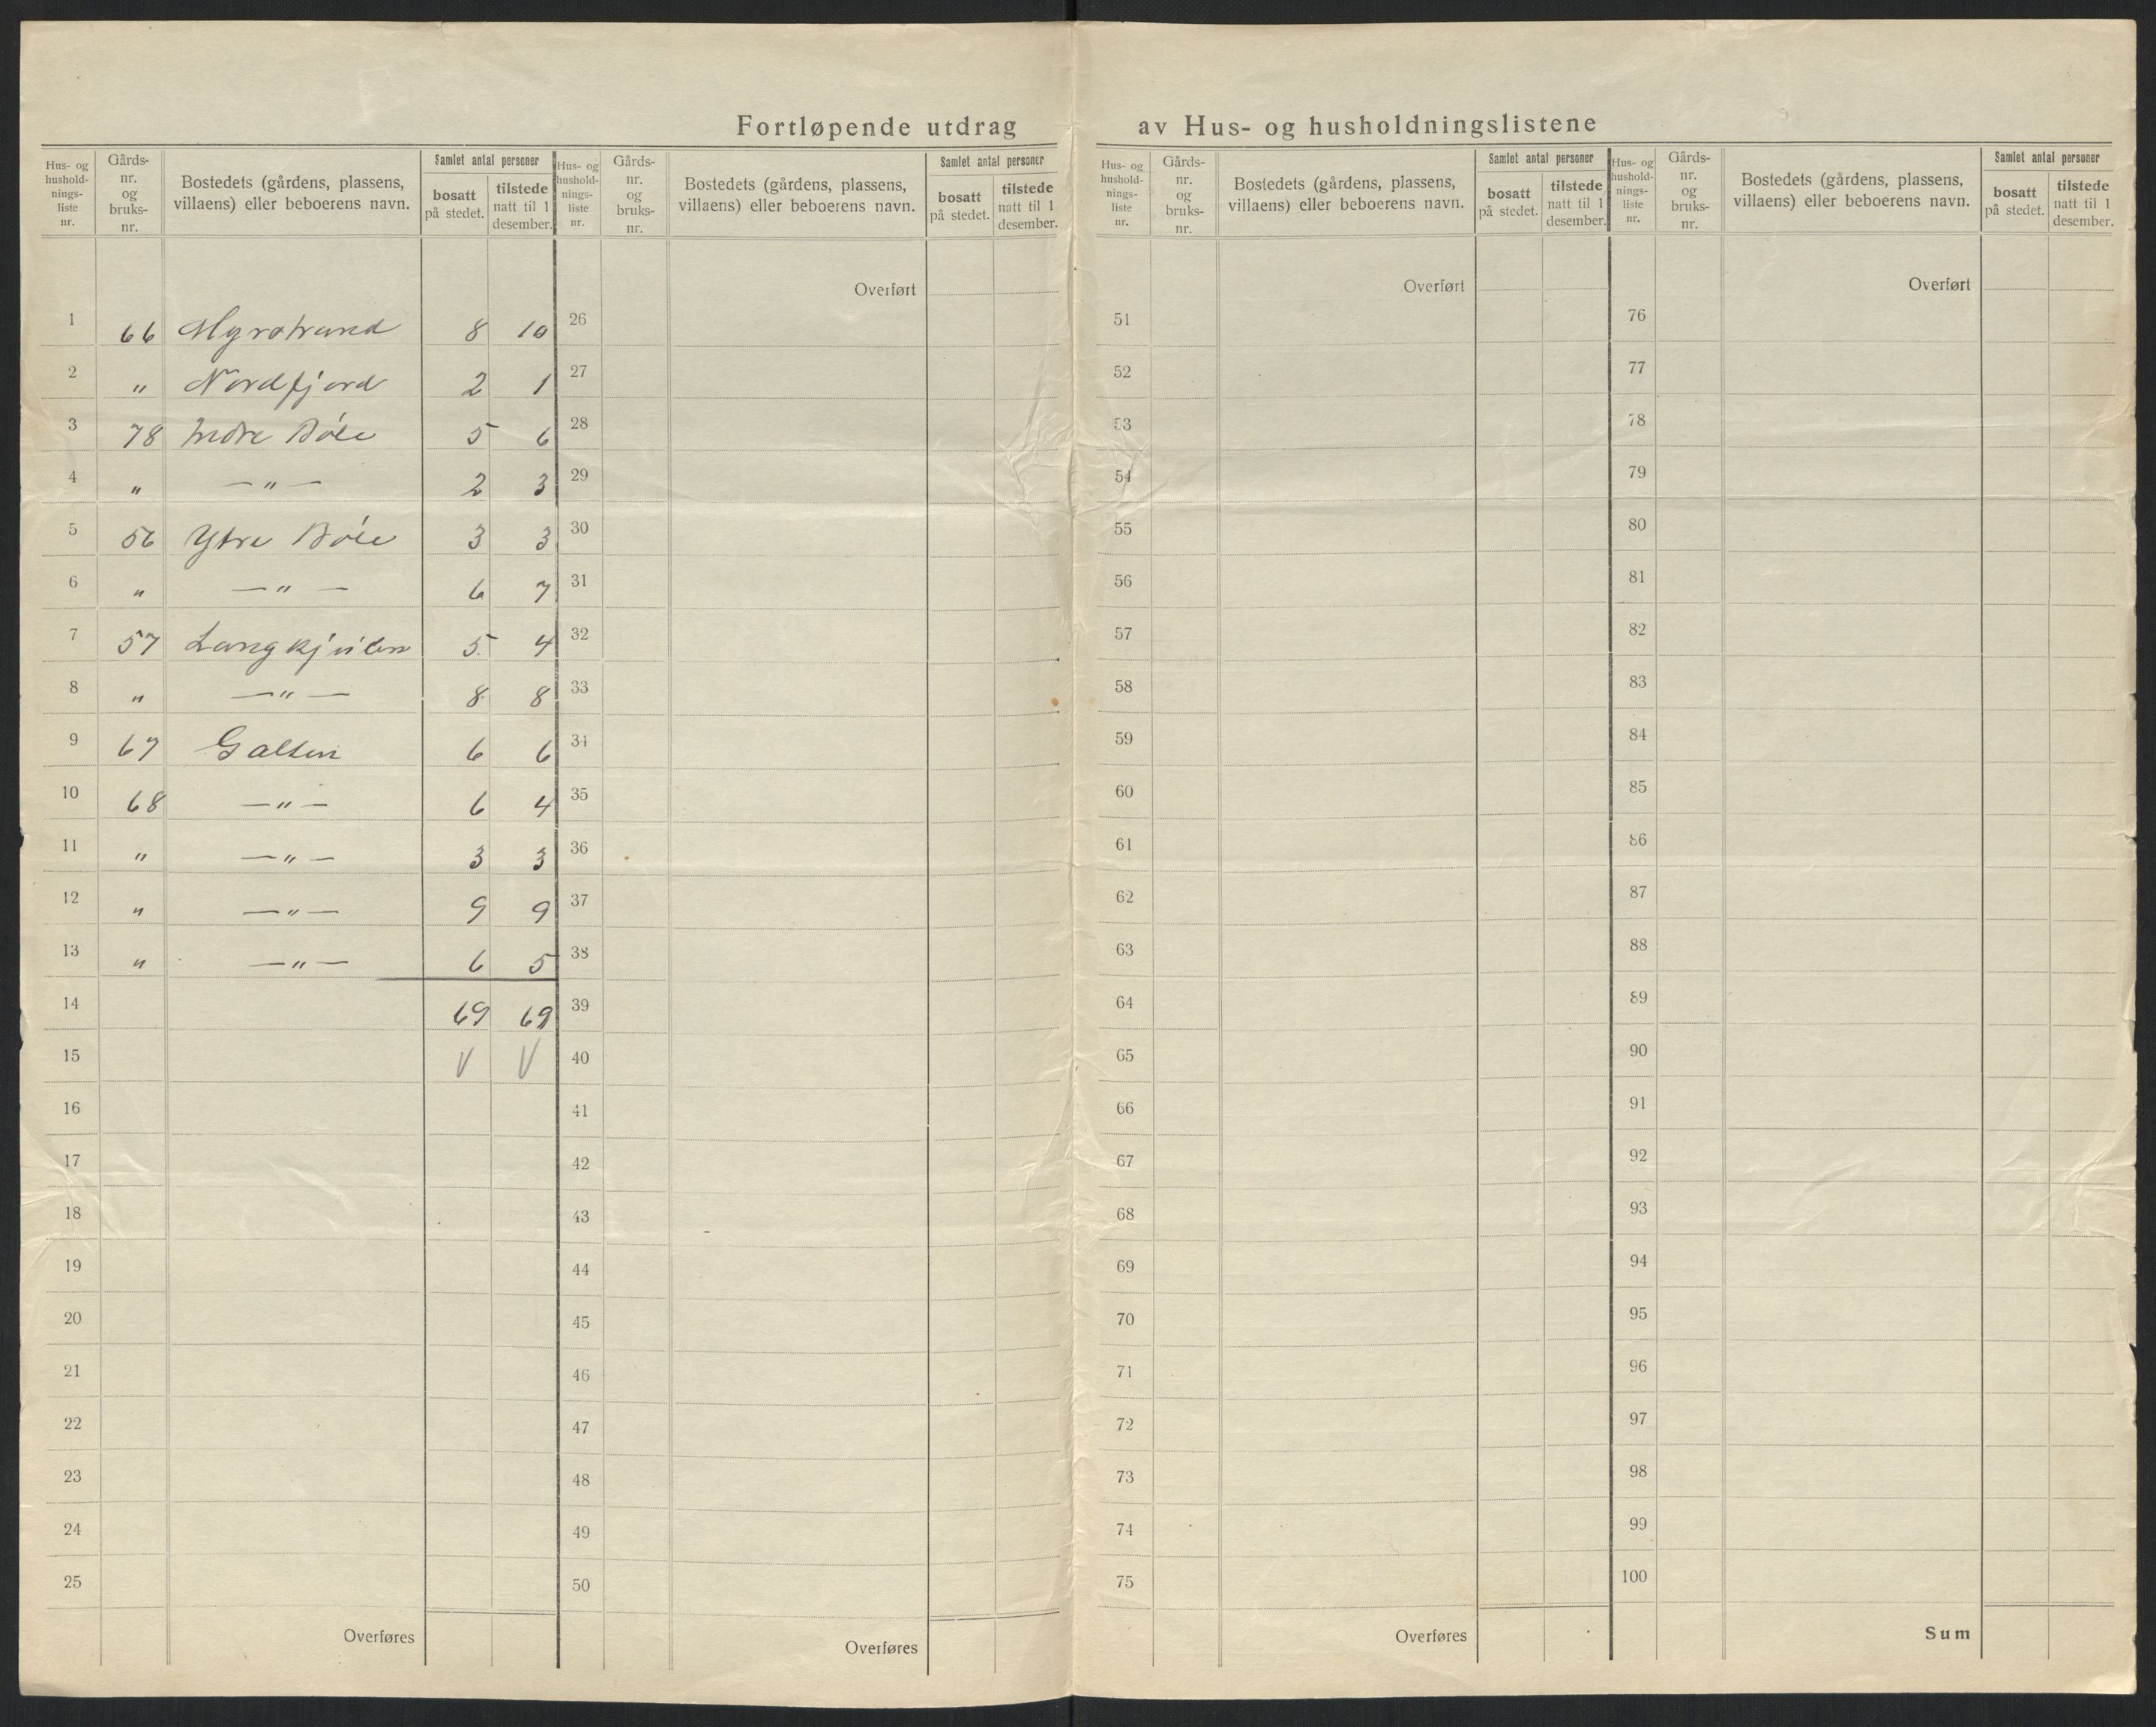 Fortløpende utdrag av Hus- og husholdningslistene
Hus- og husholdnings-liste nr. Gårds-nr. og bruks-nr. Bostedets (gårdens, plassens, villaens) eller beboerens navn. Samlet antal personer bosatt på stedet. tilstede natt til 1 desember.
Hus- og husholdnings-liste nr. Gårds-nr. og bruks-nr. Bostedets (gårdens, plassens, villaens) eller beboerens navn. Samlet antal personer bosatt på stedet. tilstede natt til 1 desember.
Hus- og husholdnings-liste nr. Gårds-nr. og bruks-nr. Bostedets (gårdens, plassens, villaens) eller beboerens navn. Samlet antal personer bosatt på stedet. tilstede natt til 1 desember.
Hus- og husholdnings-liste nr. Gårds-nr. og bruks-nr. Bostedets (gårdens, plassens, villaens) eller beboerens navn. Samlet antal personer bosatt på stedet. tilstede natt til 1 desember.
Overført Overført Overført
1 66 Myrstrand 8 10 26 51 76
2 " Nordfjord 2 1 27 52 77
3 78 Indre Bóle 5 6 28 53 78
4 " — " — 2 3 29 54 79
5 56 Ytre Bóle 3 3 30 55 80
6 " — " — 6 7 31 56 81
7 57 5 4 32 57 82
8 " — " — 8 8 33 58 83
9 67 Galten 6 6 34 59 84
10 68 — " — 6 4 35 60 85
11 " — " — 3 3 36 61 86
12 " — " — 9 9 37 62 87
13 " — " — 6 5 38 63 88
14 69 69 39 64 89
15 V V 40 65 90
16 41 66 91
17 42 67 92
18 43 68 93
19 44 69 94
20 45 70 95
21 46 71 96
22 47 72 97
23 48 73 98
24 49 74 99
25 50 75 100
Overføres Overføres Overføres Sum